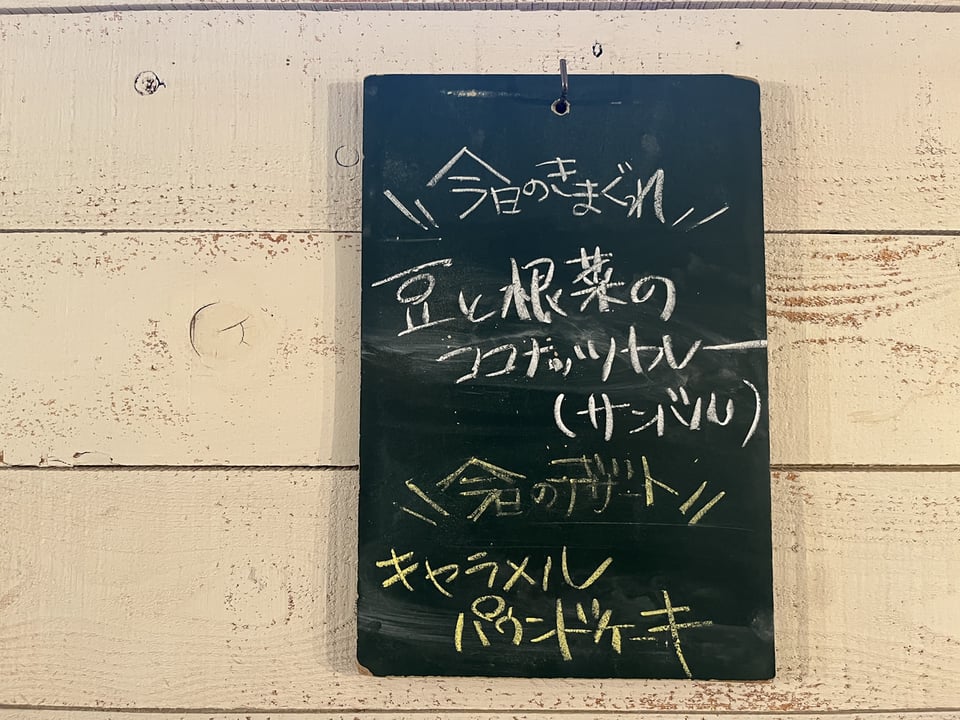 \\ 今日のきまぐれ //
豆と根菜の
ココナッツカレー
(サンバル)
\\ 今日のデザート //
キャラメル
パウンドケーキ